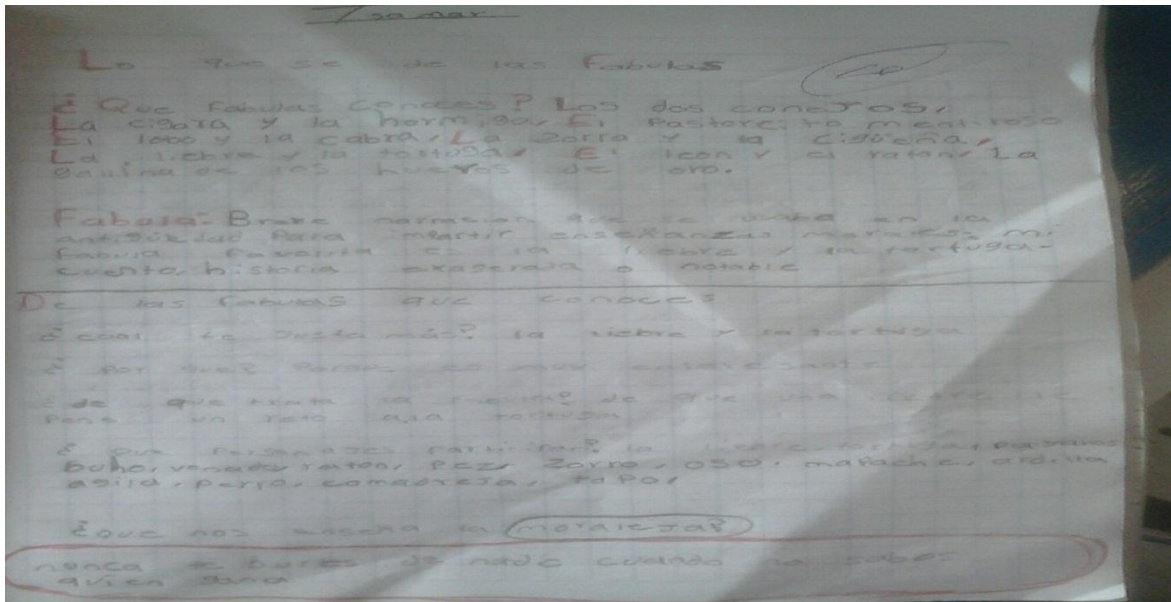 Isamar
Lo que se de las Fabulas
¿Que Fabulas conoces? Los dos conejos,
La cigara y la hormiga, El Pastorcito mentiroso
El lobo y la cabra, La zorra y la cigüeña,
La liebre y la tortuga, El leon y el raton, La
gallina de los huevos de oro.
Fabula: Breve narrasion que se usaba en la
antigüedad Para impartir enseñanzas morales mi
Fabula Favorita es la liebre y la tortuga-
cuento, historia exagerada o notable
De las Fabulas que conoces
¿cual te gusta más? la liebre y la tortuga
¿Por que? Porque es muy interesante
¿de que trata la fabula? de que una liebre le
Pone un reto ala tortuga
¿que Personajes participan? la liebre, tortuga, Pajaros
buho, venado, raton, Pez, zorro, oso, mapache, ardilla
agila, perro, comadreja, topo,
¿Que nos enseña la moraleja?
nunca te burles de nade cuando no sabes
quien gana